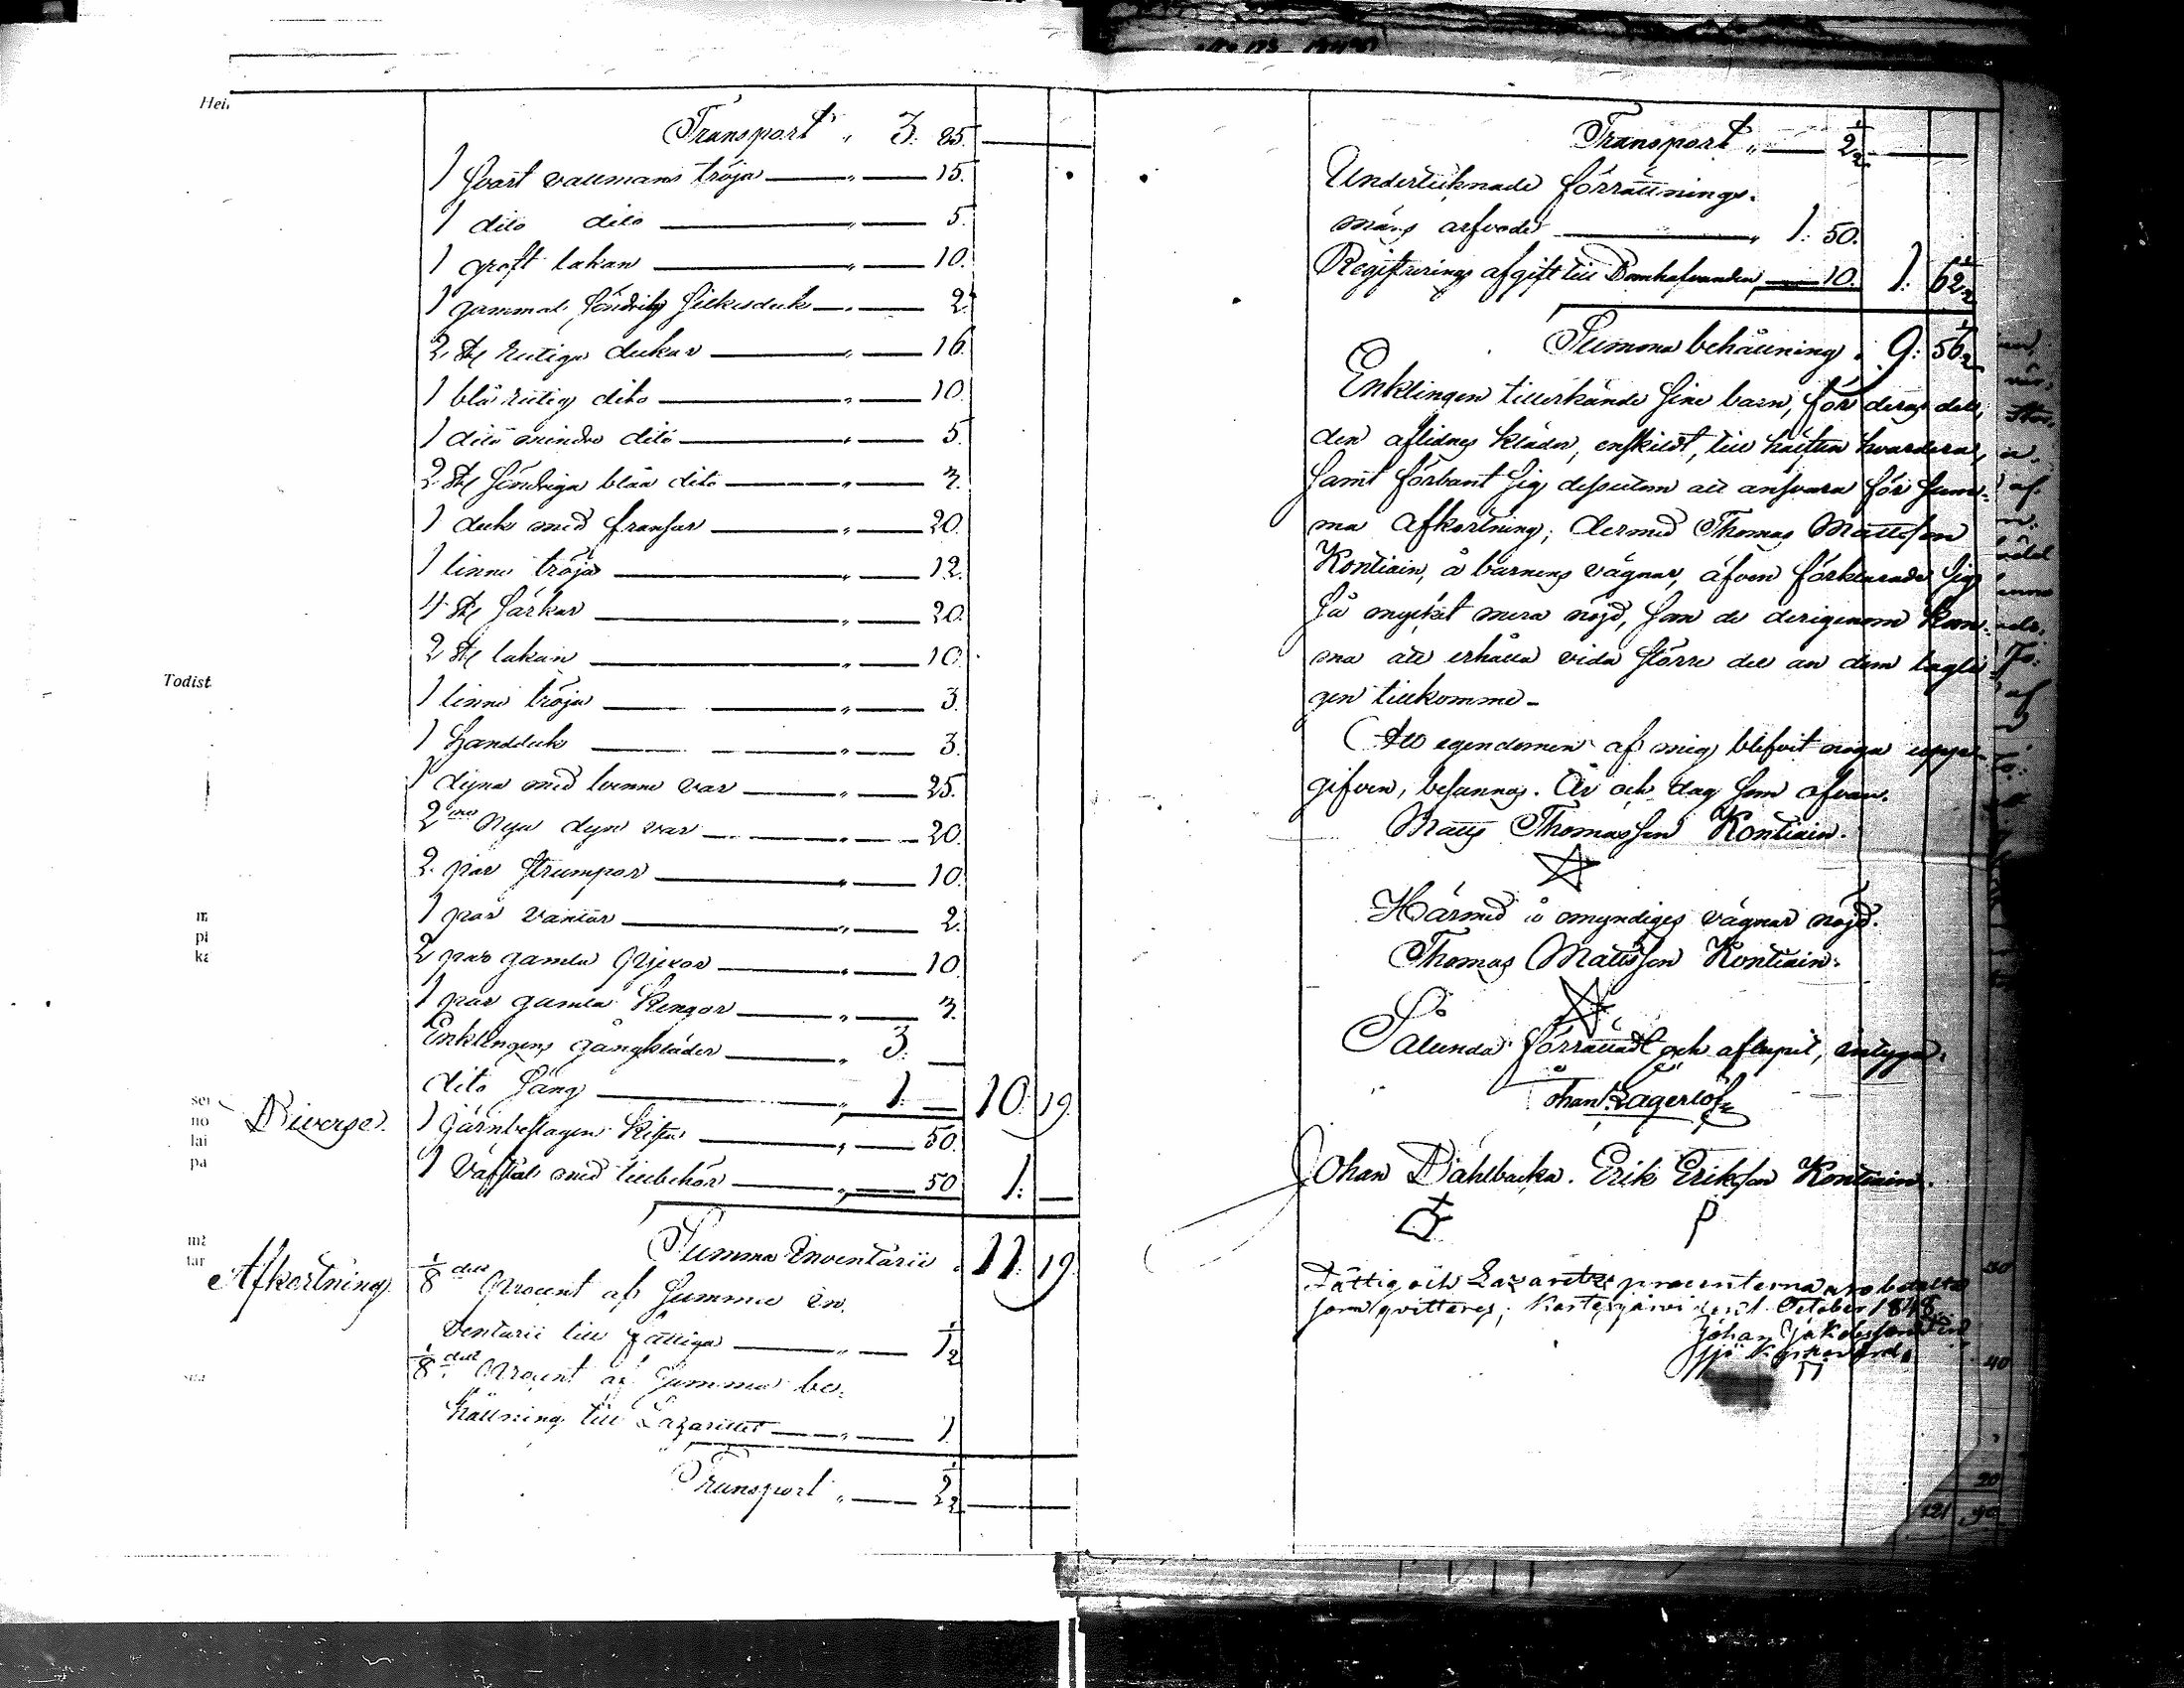 Transport " 3: 85.
1 svart vallmans tröja — " — 15.
1 dito dito — " — 5.
1 groft lakan — " — 10.
1 gammal söndrig silkesduk — " — 2.
2 st rutiga dukar — " — 16.
1 blå rutig dito — " — 10.
1 dito mindre dito — " — 5.
2 st söndriga blåa dito — " — 3.
1 duk med fransar — " — 20.
1 linne tröja — " — 12.
4 st särkar — " — 20.
2 st lakan — " — 10.
1 linne tröja — " — 3.
1 handduk — " — 3.
1 dyna med linne var — " — 25.
2ne nya dyn var — " — 20.
2 par strumpor — " — 10.
1 par vantar — " — 2.
2 par gamla — " — 10.
1 par gamla kengor — " — 3.
Enklingens gångkläder — " 3: —
dito säng — " 1: — 10: 19.
Diverse. 1 järnbeslagen kista — " — 50.
1 väfstol med tillbehör — " — 50. 1: —
Summa Inventarii " 11: 19.
Afkortning. 1/8 dels procent af summa in-
ventarii till fattiga — " — 1 1/2
1/8 dels procent af summa be-
hållning till Lazarettet — " — 1.
Transport " — 2 1/2
Transport " — 2 1/2
Undertecknade förrättnings-
mäns arfvode — " 1: 50.
Registrerings afgift till Domhafvanden — 10. 1: 62 1/2
Summa behållning " 9: 56 1/2
Enklingen tillerkände sine barn, för deras del,
den aflidnes kläder, enskildt, till hälften hvardera,
samt förbant sig dessutom att ansvara för sum-
ma afkortning; dermed Thomas Mattsson
Kontiain, å barnens vägnar, äfven förklarade sig
så mycket mera nöjd, som de derigenom kom-
ma att erhålla vida större del än dem lagli-
gen tillkomme.
Att egendomen af mig blifvit noga upp-
gifven, besannas. År och dag som ofvan.
Matts Thomasson Kontiain.
Härmed å omyndiges vägnar nöjd.
Thomas Mattsson Kontiain.
Sålunda förrättadt och aflupit, intyga:
Johan Lagerlöf
Johan Dahlbacka. Erik Eriksson Kontiain.
Fattig och Lazaretts procenterna äro betalta
som qvitteras; Kortesjärvi den 1 October 1848
Johan Jakobsson